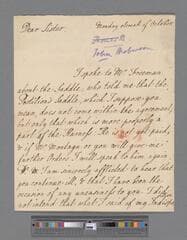 Dear Sister
Monday 2 o'clock 1st October
John Robinson
I spoke to Mr Freeman
about the Saddle, who told me that the
Postilion's Saddle, which I suppose you
mean, does not come within the agreement,
but only that which is more properly a
part of the Harness. He is not yet paid,
& if Mr Montagu or you will give me
further Orders I will speak to him again
I am sincerely afflicted to hear that
you continue ill, & that I have been the
occasion of any uneasiness to you. I did
not intend that what I said of my Indispo